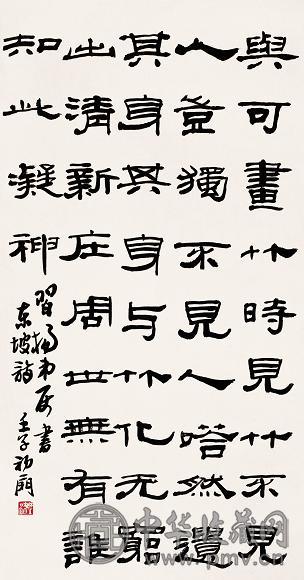 與可畫竹時見竹不見
人豈獨不見人嗒然遺
其身其身与竹化无窮
出清新庄周世無有誰
知此凝神
習 書
東坡詩 壬子初
中华收藏网